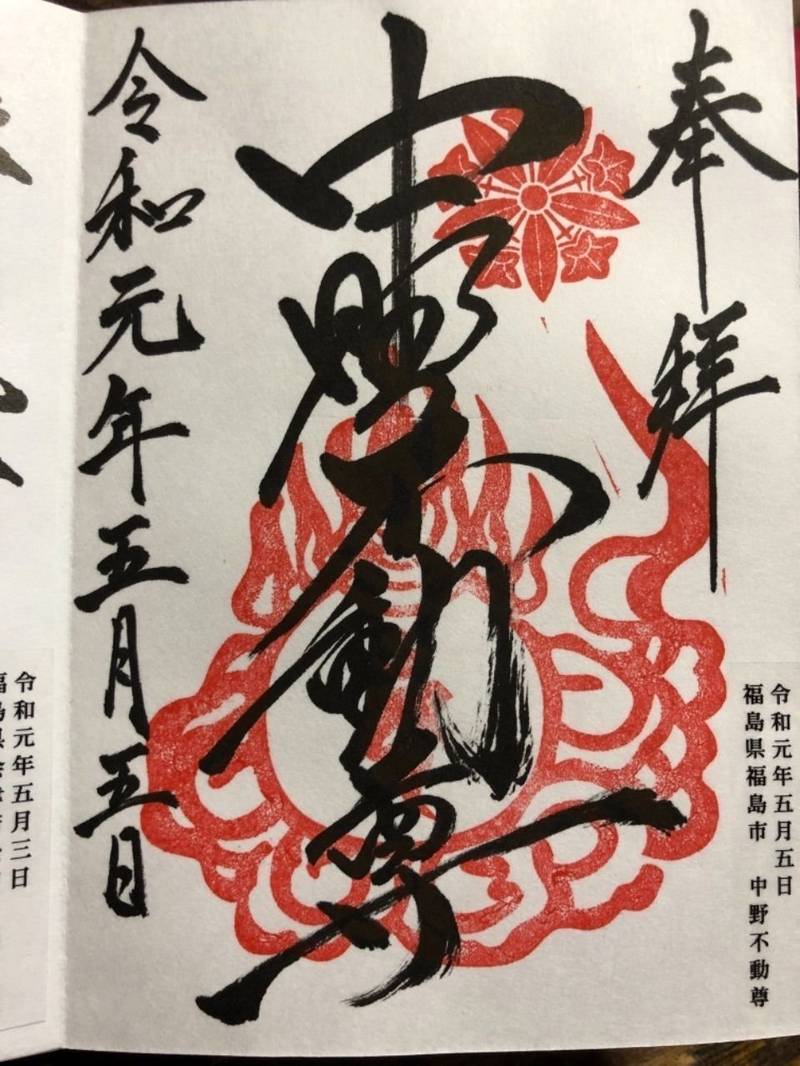 奉拝
中野不動尊
令和元年五月五日
令和元年五月五日
福島県福島市 中野不動尊
令和元年五月三日